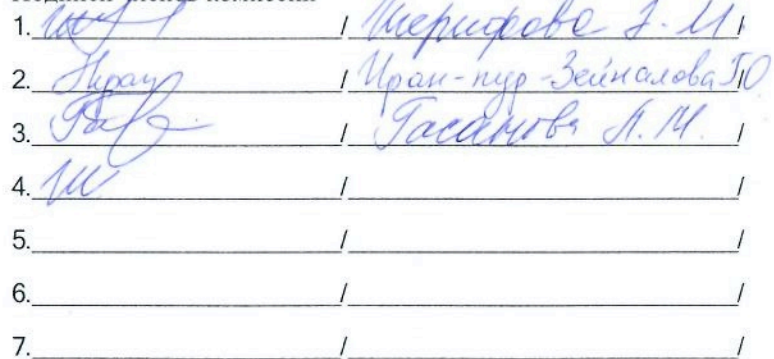 1. / Шерифова З. М. /
2. / Иран-пур-Зейналова Г.О. /
3. / Гасанова А. М. /
4. / /
5. / /
6. / /
7. / /